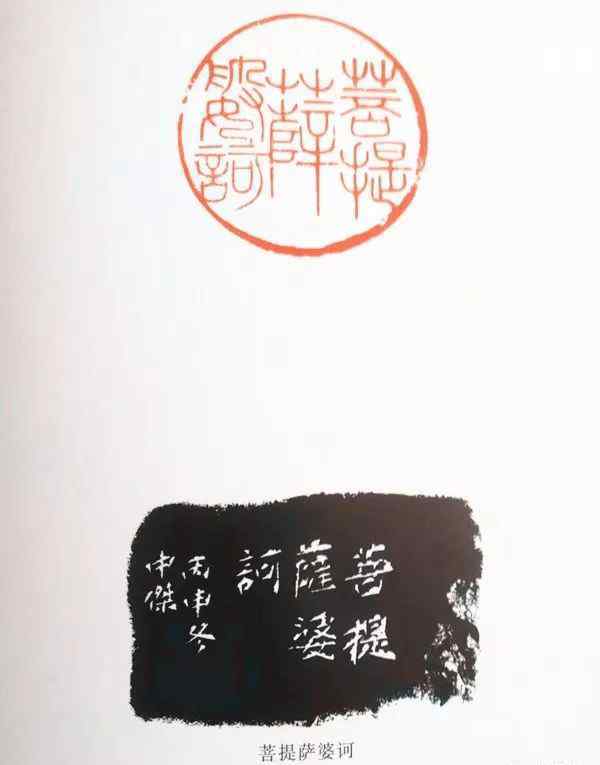 菩提
薩
婆訶
菩提
薩婆
訶
丙申冬
中傑
菩提萨婆诃